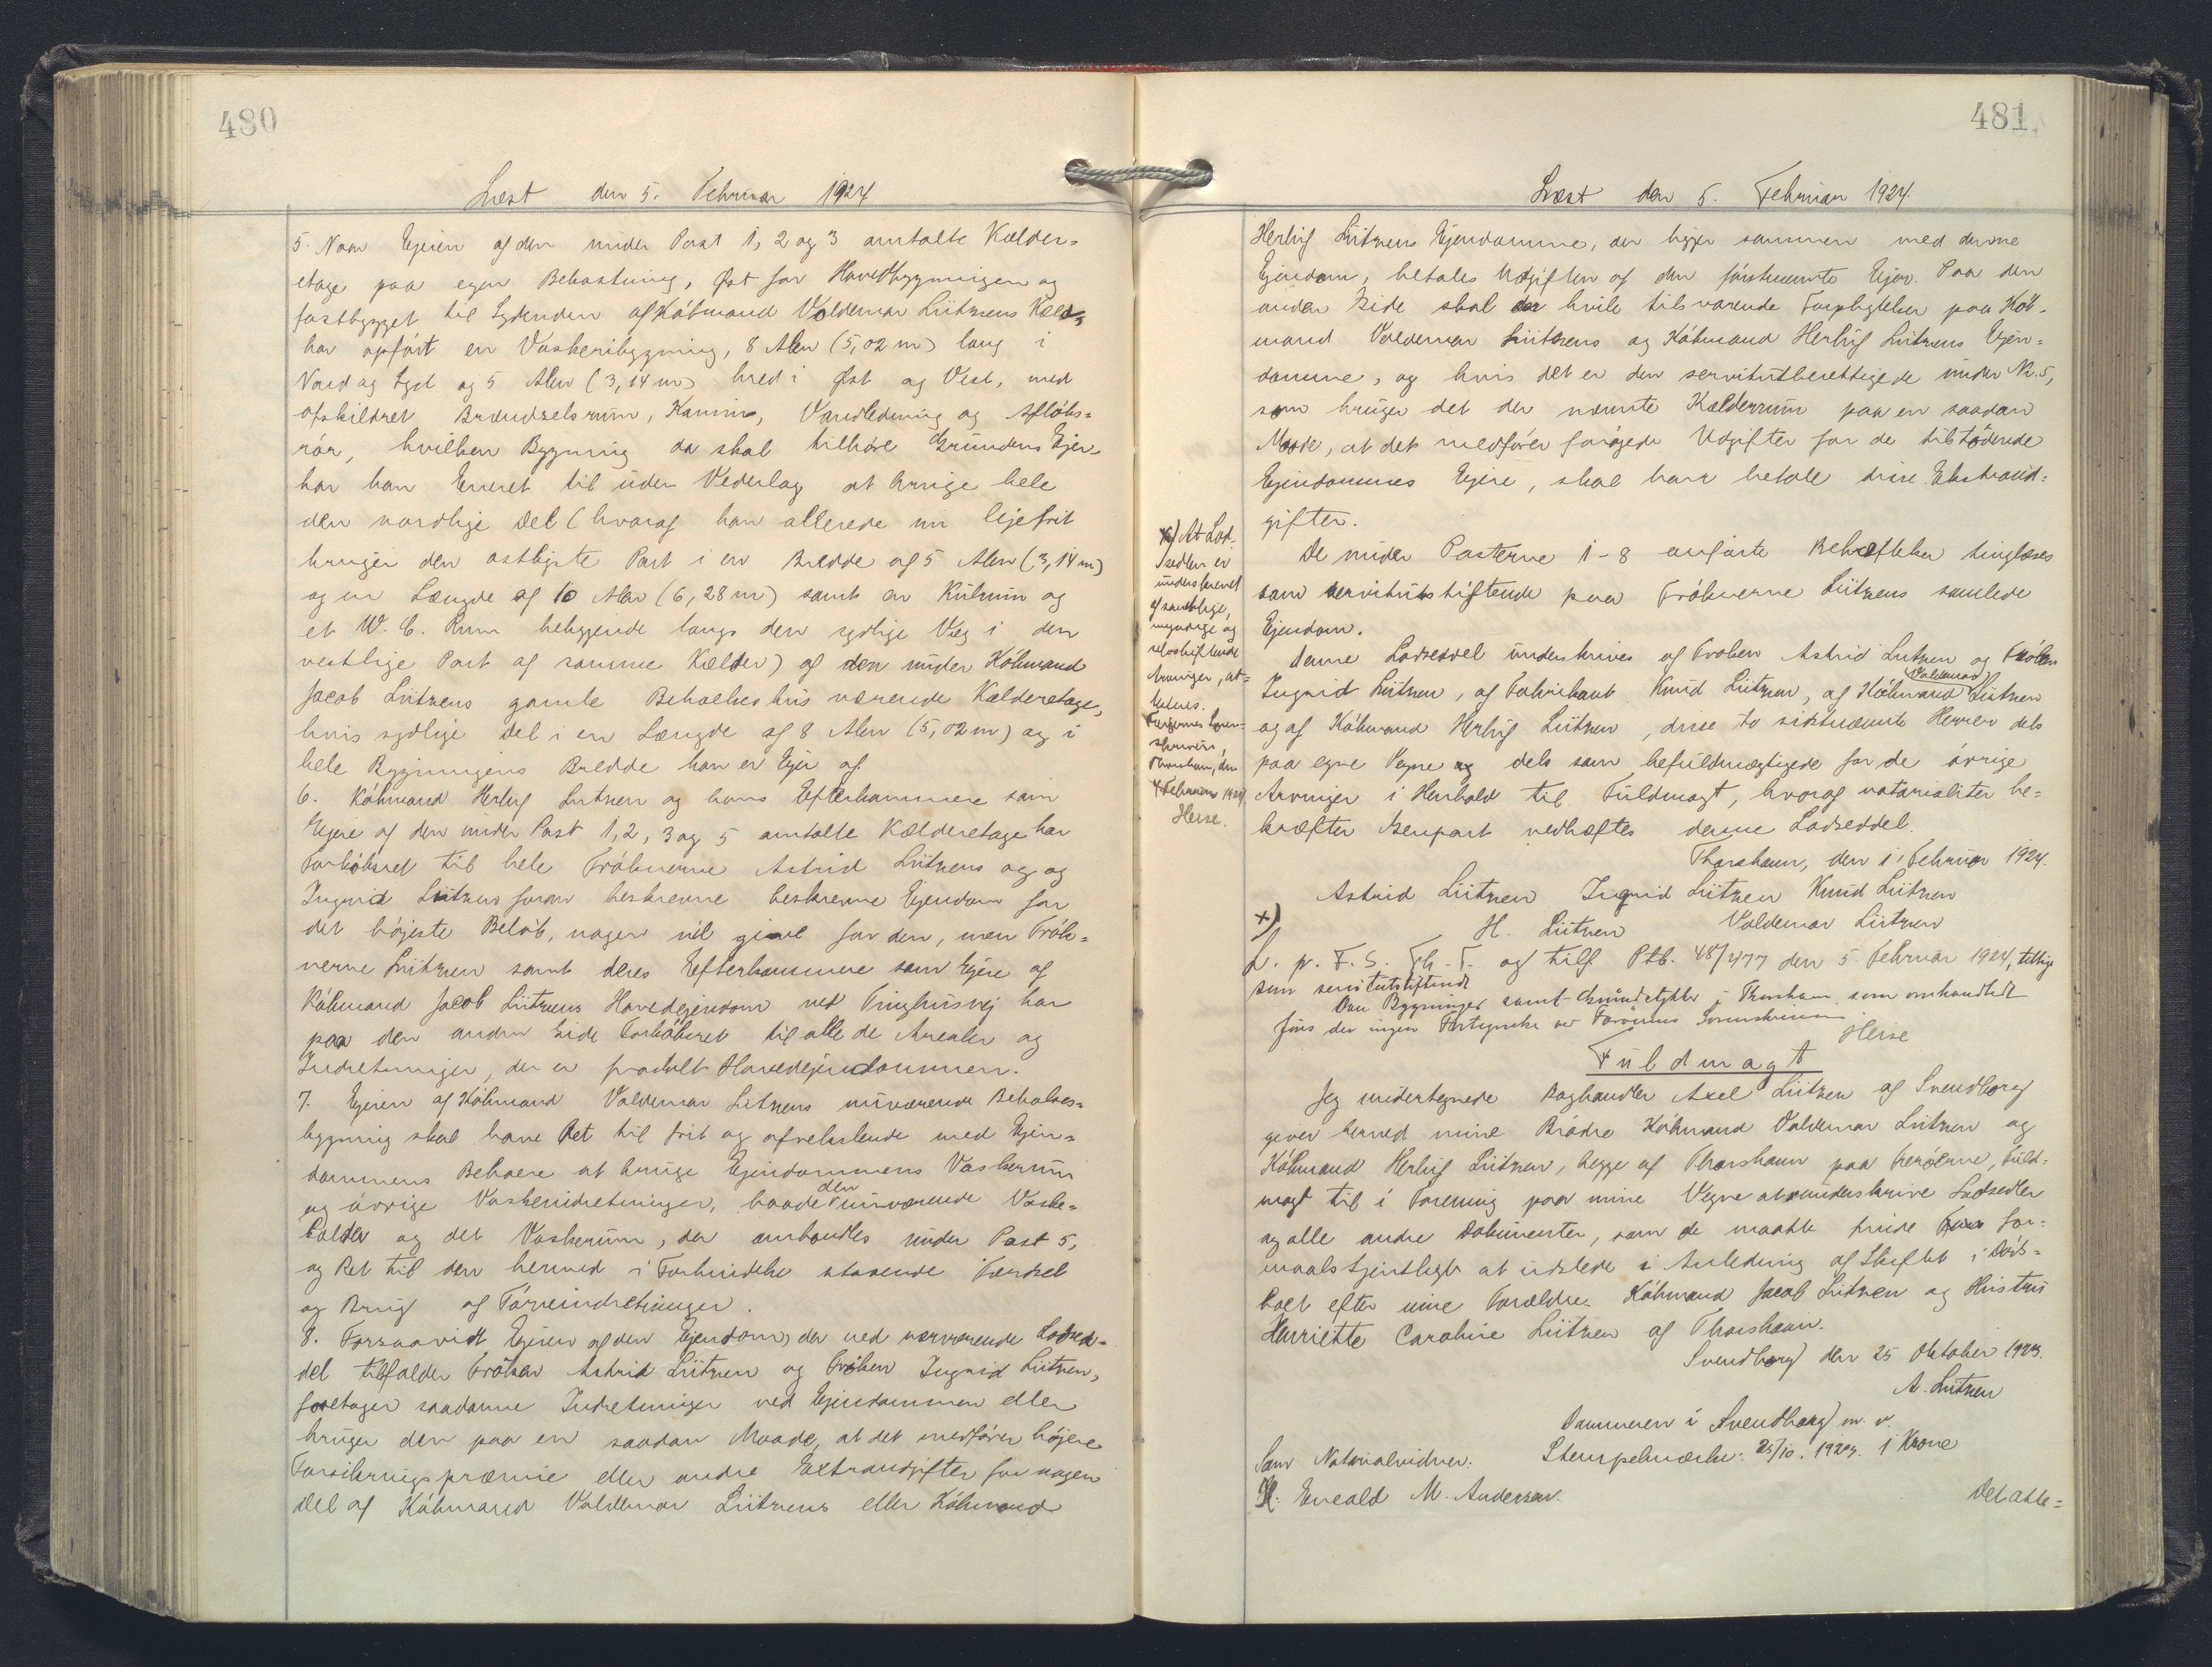 480
Læst den 5. Februar 1924
5. Naar Ejeren af den under Post 1, 2 og 3 omtalte Kælder=
etage paa egen Bekostning, Øst for Hovedbygningen og
fastbygget til Sydenden af Købmand Valdemar Lützens Kæld,
har opført en Vaskeribygning, 8 Alen (5,02 m) lang i
Nord og Syd og 5 Alen (3,14 m) bred i Øst og Vest, med
afskildret Brændselsrum, Kamin, Vandledning og Afløbs=
rør, hvilken Bygning da skal tilhøre Grundens Ejer,
har han Eneret til uden Vederlag at bruge hele
den nordlige Del (hvoraf han allerede nu lejefrit
bruger den østligste Part i en Bredde af 5 Alen (3,14 m)
og en Længde af 10 Alen (6,28 m) samt en Kulrum og
et W. C. Rum beliggende langs den sydlige Væg i den
vestlige Part af samme Kælder) af den under Købmand
Jacob Lützens gamle Beboelseshus værende Kælderetage,
hvis sydlige Del i en Længde af 8 Alen (5,02 m) og i
hele Bygningens Bredde han er Ejer af.
6. Købmand Herluf Lützen og hans Efterkommere som
Ejere af den under Post 1, 2, 3 og 5 omtalte Kælderetage har
Forkøbsret til hele Frøknerne Astrid Lützens og og
Ingrid Lützens foran beskrevne beskrevne Ejendom for
det højeste Beløb, nogen vil give for den, men Frøk=
nerne Lützen samt deres Efterkommere som Ejere af
Købmand Jacob Lützens Hovedejendom ved Tinghusvej har
paa den anden Side Forkøbsret til alle de Arealer og
Indretninger, der er fradelt Hovedejendommen.
7. Ejeren af Købmand Valdemar Lützens nuværende Beboelses=
bygning skal have Ret til frit og afvekslende med Ejen=
dommens Beboere at bruge Ejendommens Vaskerum
og øvrige Vaskeindretninger, baade den nuværende Vaske=
kælder og det Vaskerum, der omhandles under Post 5,
og Ret til den hermed i Forbindelse staaende Færdsel
og Brug af Tørreindretninger.
8. Forsaavidt Ejeren af den Ejendom, der ved nærværende Lodsed=
del tilfalder Frøken Astrid Lützen og Frøken Ingrid Lützen,
foretager saadanne Indretninger ved Ejendommen eller
bruger den paa en saadan Maade, at det medfører højere
Forsikringspræmie eller andre Extraudgifter for nogen
Del af Købmand Valdemar Lützens eller Købmand
481
Læst den 5. Februar 1924.
Herluf Lützens Ejendomme, der bygger sammen med denne
Ejendom, betales Udgiften af den førstnævnte Ejer. Paa den
anden Side skal der hvile tilsvarende Forpligtelser paa Køb=
mand Valdemar Lützens og Købmand Herluf Lützens Ejen=
domme, og hvis det er den servitutberettigede under Nr. 5,
som bruger det der nævnte Kælderrum paa en saadan
Maade, at det medfører forøgede Udgifter for de tilstødende
Ejendommes Ejere, skal han betale disse Ekstraud=
gifter.
De under Posterne 1-8 anførte Bekræftelser tinglæses
som servitutstiftende paa Frøknerne Lützens samlede
Ejendom.
Denne Lodseddel underskrives af Frøken Astrid Lützen og Frøken
Ingrid Lützen, af Fabrikant Knud Lützen, af Købmand Valdemar Lützen
og af Købmand Herluf Lützen, disse to sidstnævnte Herrer dels
paa egne Vegne og dels som befuldmægtigede for de øvrige
Arvinger i Henhold til Fuldmagt, hvoraf notarialiter be=
kræftet Genpart vedhæftes denne Lodseddel.
Thorshavn, den 1. Februar 1924.
Astrid Lützen Ingrid Lützen Knud Lützen
x) H. Lützen Valdemar Lützen
L. p. F. S. Th. T. og tilf Ptb. 48/477 den 5. Februar 1924, tillige
som servitutstiftende
Om Bygninger samt Grundstykke i Thorshavn som omhandlet
fins der ingen ved Færøernes Sorenskriveri
Hesse
x) At Lod=
sedlen er
underskrevet
af samtlige,
myndige og
selvskiftende
Arvinger, at=
testeres.
Færøernes Soren=
skriveri,
Thorshavn, den
4 Februar 1924
Hesse.
Fuldmagt
Jeg undertegnede Boghandler Axel Lützen af Svendborg
giver herved mine Brødre Købmand Valdemar Lützen og
Købmand Herluf Lützen, begge af Thorshavn paa Færøerne, Fuld=
magt til i Forening paa mine Vegne at underskrive Lodsedler
og alle andre Dokumenter, som de maatte finde for=
maalstjentligt at udstede i Anledning af Skiftet i Døds=
boet efter mine Forældre Købmand Jacob Lützen og Hustru
Henriette Caroline Lützen af Thorshavn.
Svendborg den 25 Oktober 1923.
A. Lützen
Dommeren i Svendborg m. v.
Som Notarialvidner: Stempelmærke: 25/10. 1923. 1 Krone
K. Ewald M. Andersen.
Det atte=